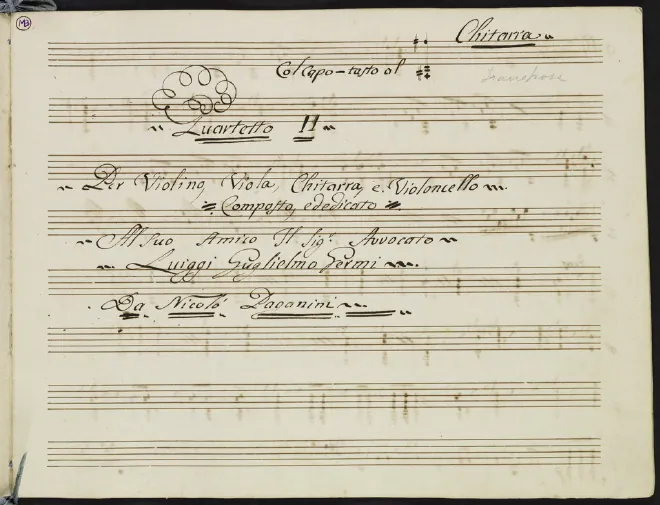 MB
Chitarra
Col Capo-tasto al
Quartetto 11
Per Violino, Viola, Chitarra, e. Violoncello
Composto, e dedicato
Al Suo Amico Il Sigr. Avvocato
Luiggi Guglielmo Germi
Da Nicolò Paganini